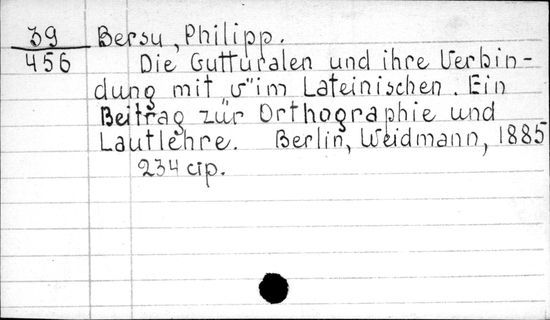 39 Bersu, Philipp.
456 Die Gutturalen und ihre Verbin-
dung mit v" im Lateinischen. Ein
Beitrag zur Orthographie und
Lautlehre. Berlin, Weidmann, 1885
234 стр.